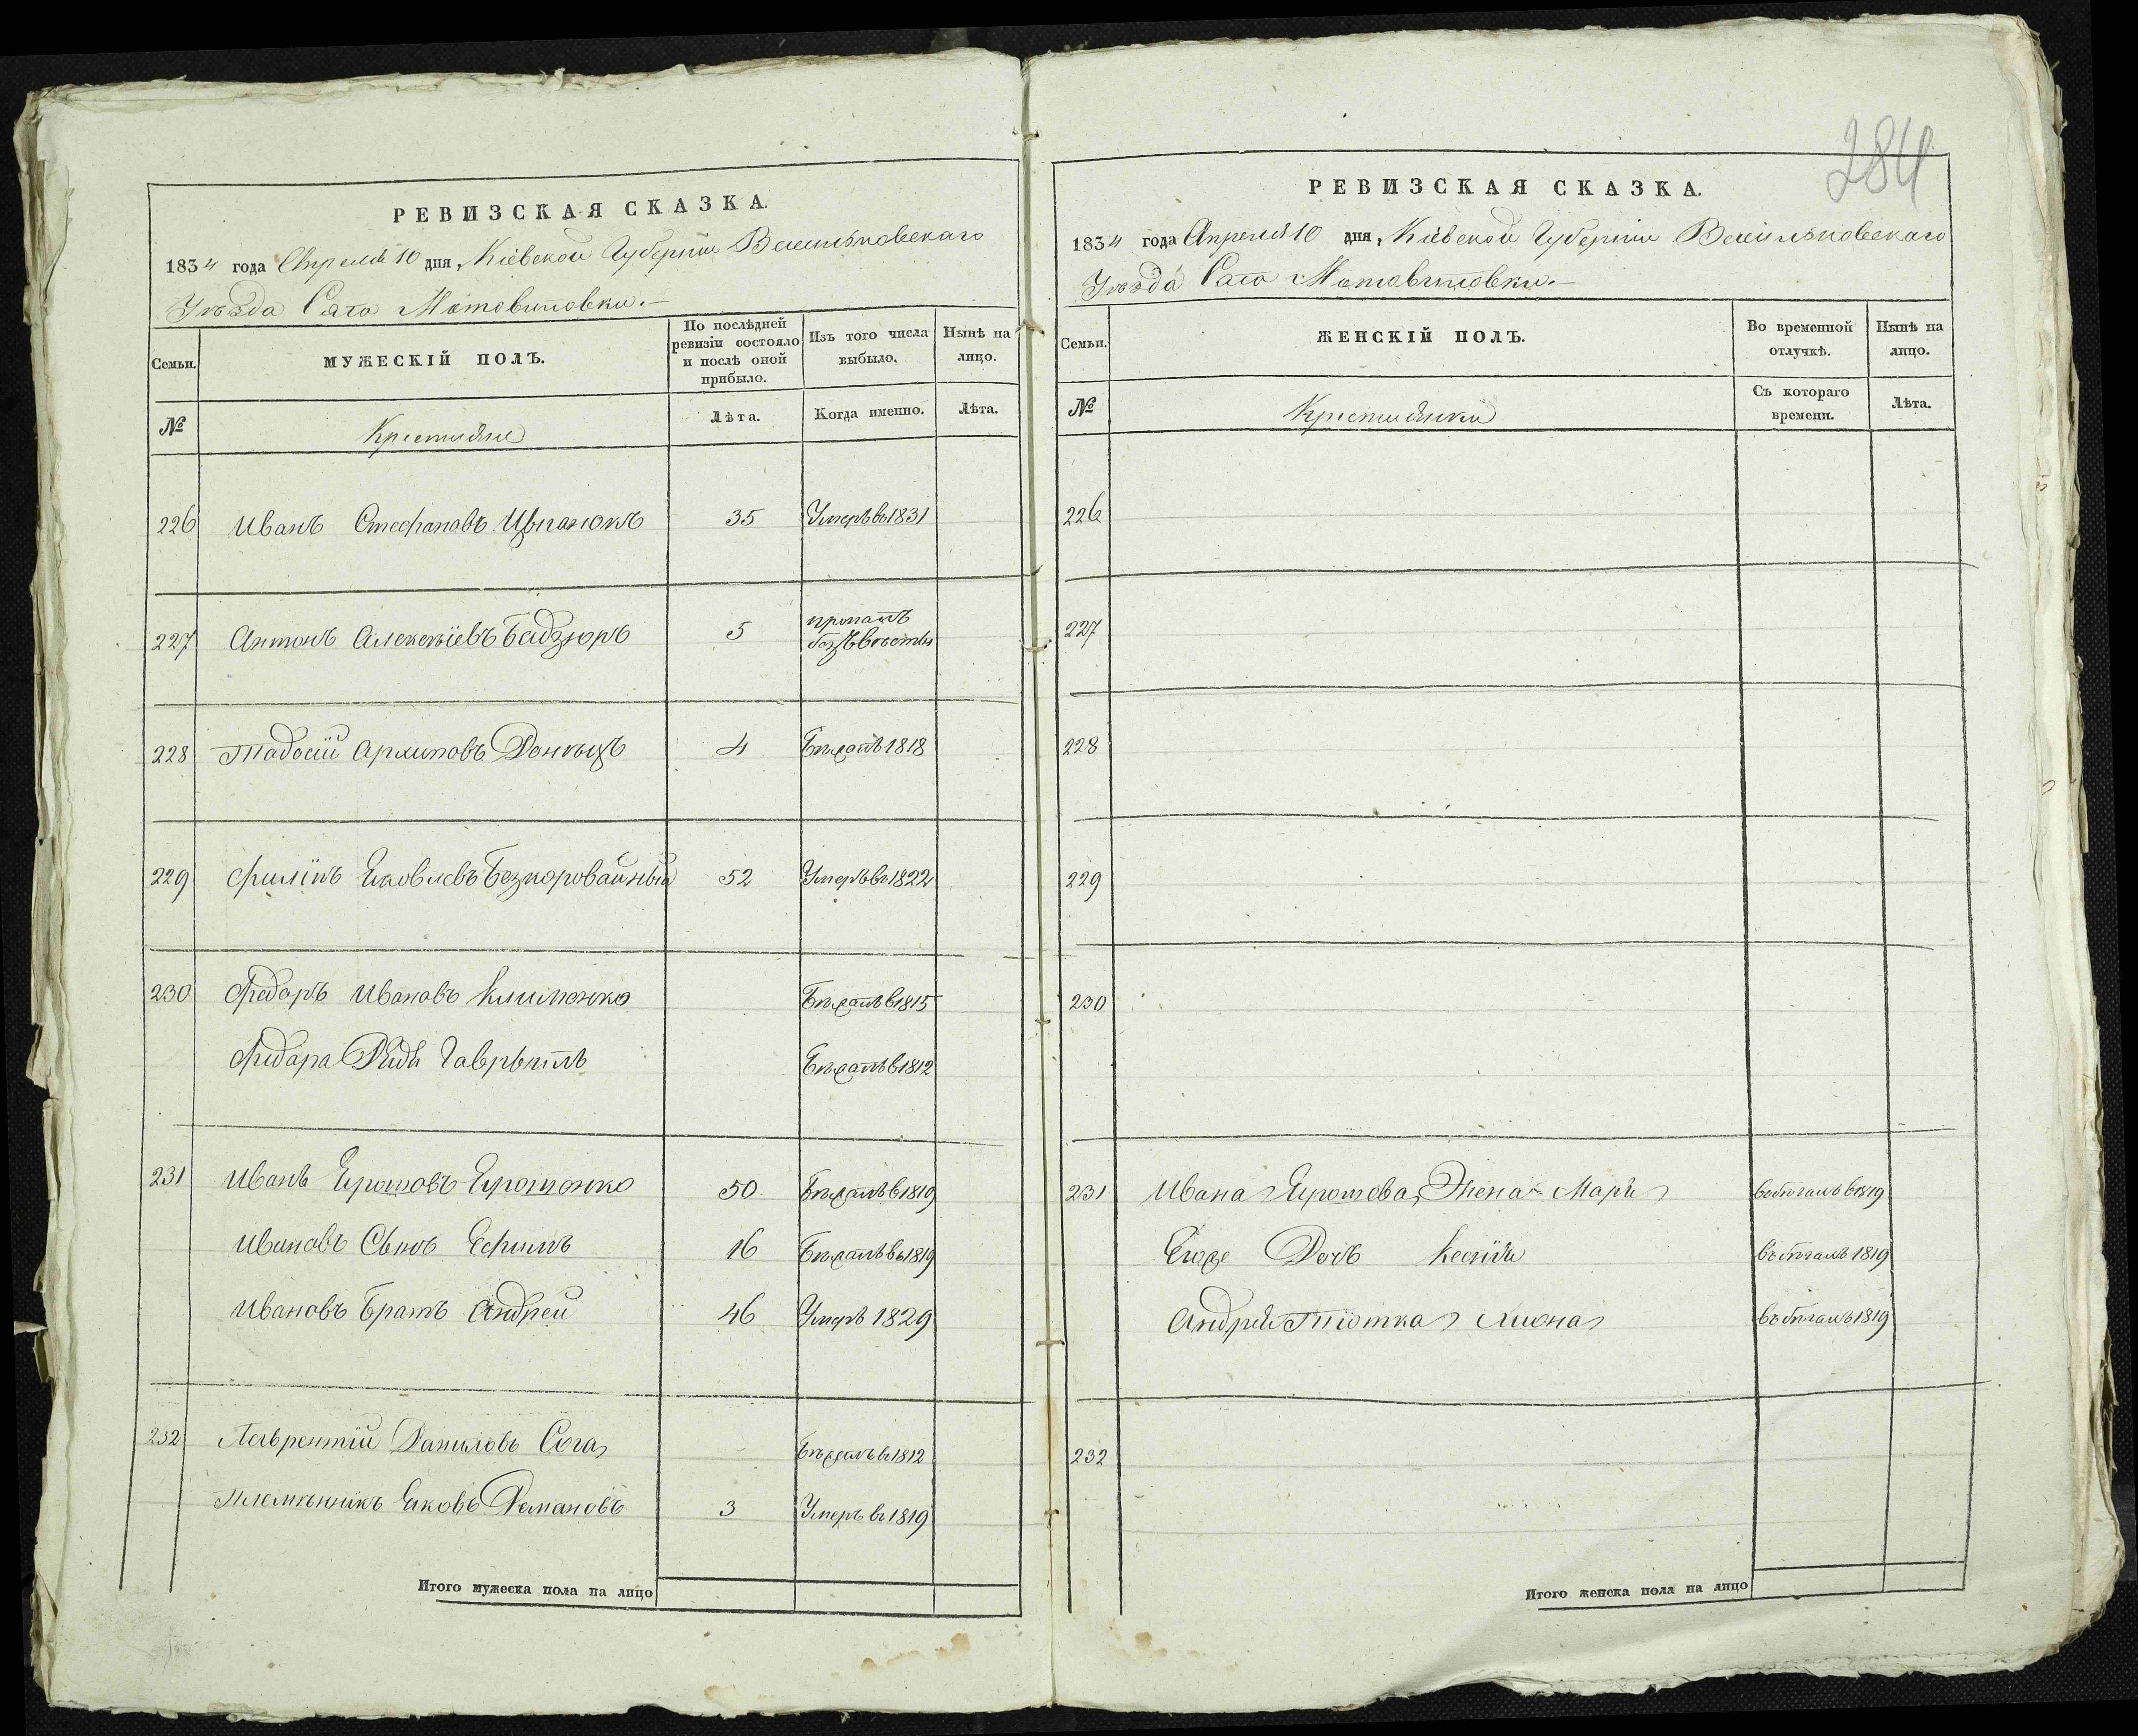 РЕВИЗСКАЯ СКАЗКА.
1834 года Апреля 10 дня, Кіевской Губерніи Васильковскаго
Уѣзда Села Мотовиловки.—
Семьи.
МУЖЕСКІЙ ПОЛЪ.
По послѣдней ревизіи состояло и послѣ оной прибыло.
Изъ того числа выбыло.
Нынѣ на лицо.
№
Крестяне
Лѣта.
Когда именно.
Лѣта.
226 Иванъ Стефановъ Цыганюкъ 35 Умеръ въ 1831
227 Антонъ Алексѣіевъ Бадзюръ 5 пропалъ
безъ вѣсты
228 Тадосіи Архиповъ Донецъ 4 Бѣжалъ 1818
229 Филіпъ Яковлевъ Безкоровайный 52 Умеръ въ 1822
230 Федоръ Ивановъ Клименко Бѣжалъ в 1815
Федора Дядя Гаврыилъ Бѣжалъ в 1812
231 Иванъ Ярошовъ Ярошенко 50 Бѣжалъ в 1819
Ивановъ Сынъ Ефимъ 16 Бѣжалъ въ 1819
Ивановъ Братъ Андреи 46 Умеръ 1829
232 Лаврентіи Даниловъ Сога Бѣжалъ въ 1812
Племѣнникъ Яковъ Романовъ 3 Умеръ въ 1819
Итого мужеска пола на лицо
284
РЕВИЗСКАЯ СКАЗКА.
1834 года Апреля 10 дня, Кіевской Губерніи Васильковскаго
Уѣзда Села Мотовиловки.—
Семьи.
ЖЕНСКІЙ ПОЛЪ.
Во временной отлучкѣ.
Нынѣ на лицо.
№
Крестянки
Съ котораго времени.
Лѣта.
226
227
228
229
230
231 Ивана Ярошева Жена Маря в бѣгахъ в 1819
Егоже Дочь Ксенія въ бѣгахъ 1819
Андрея Тіотка въ бѣгахъ 1819
232
Итого женска пола на лицо